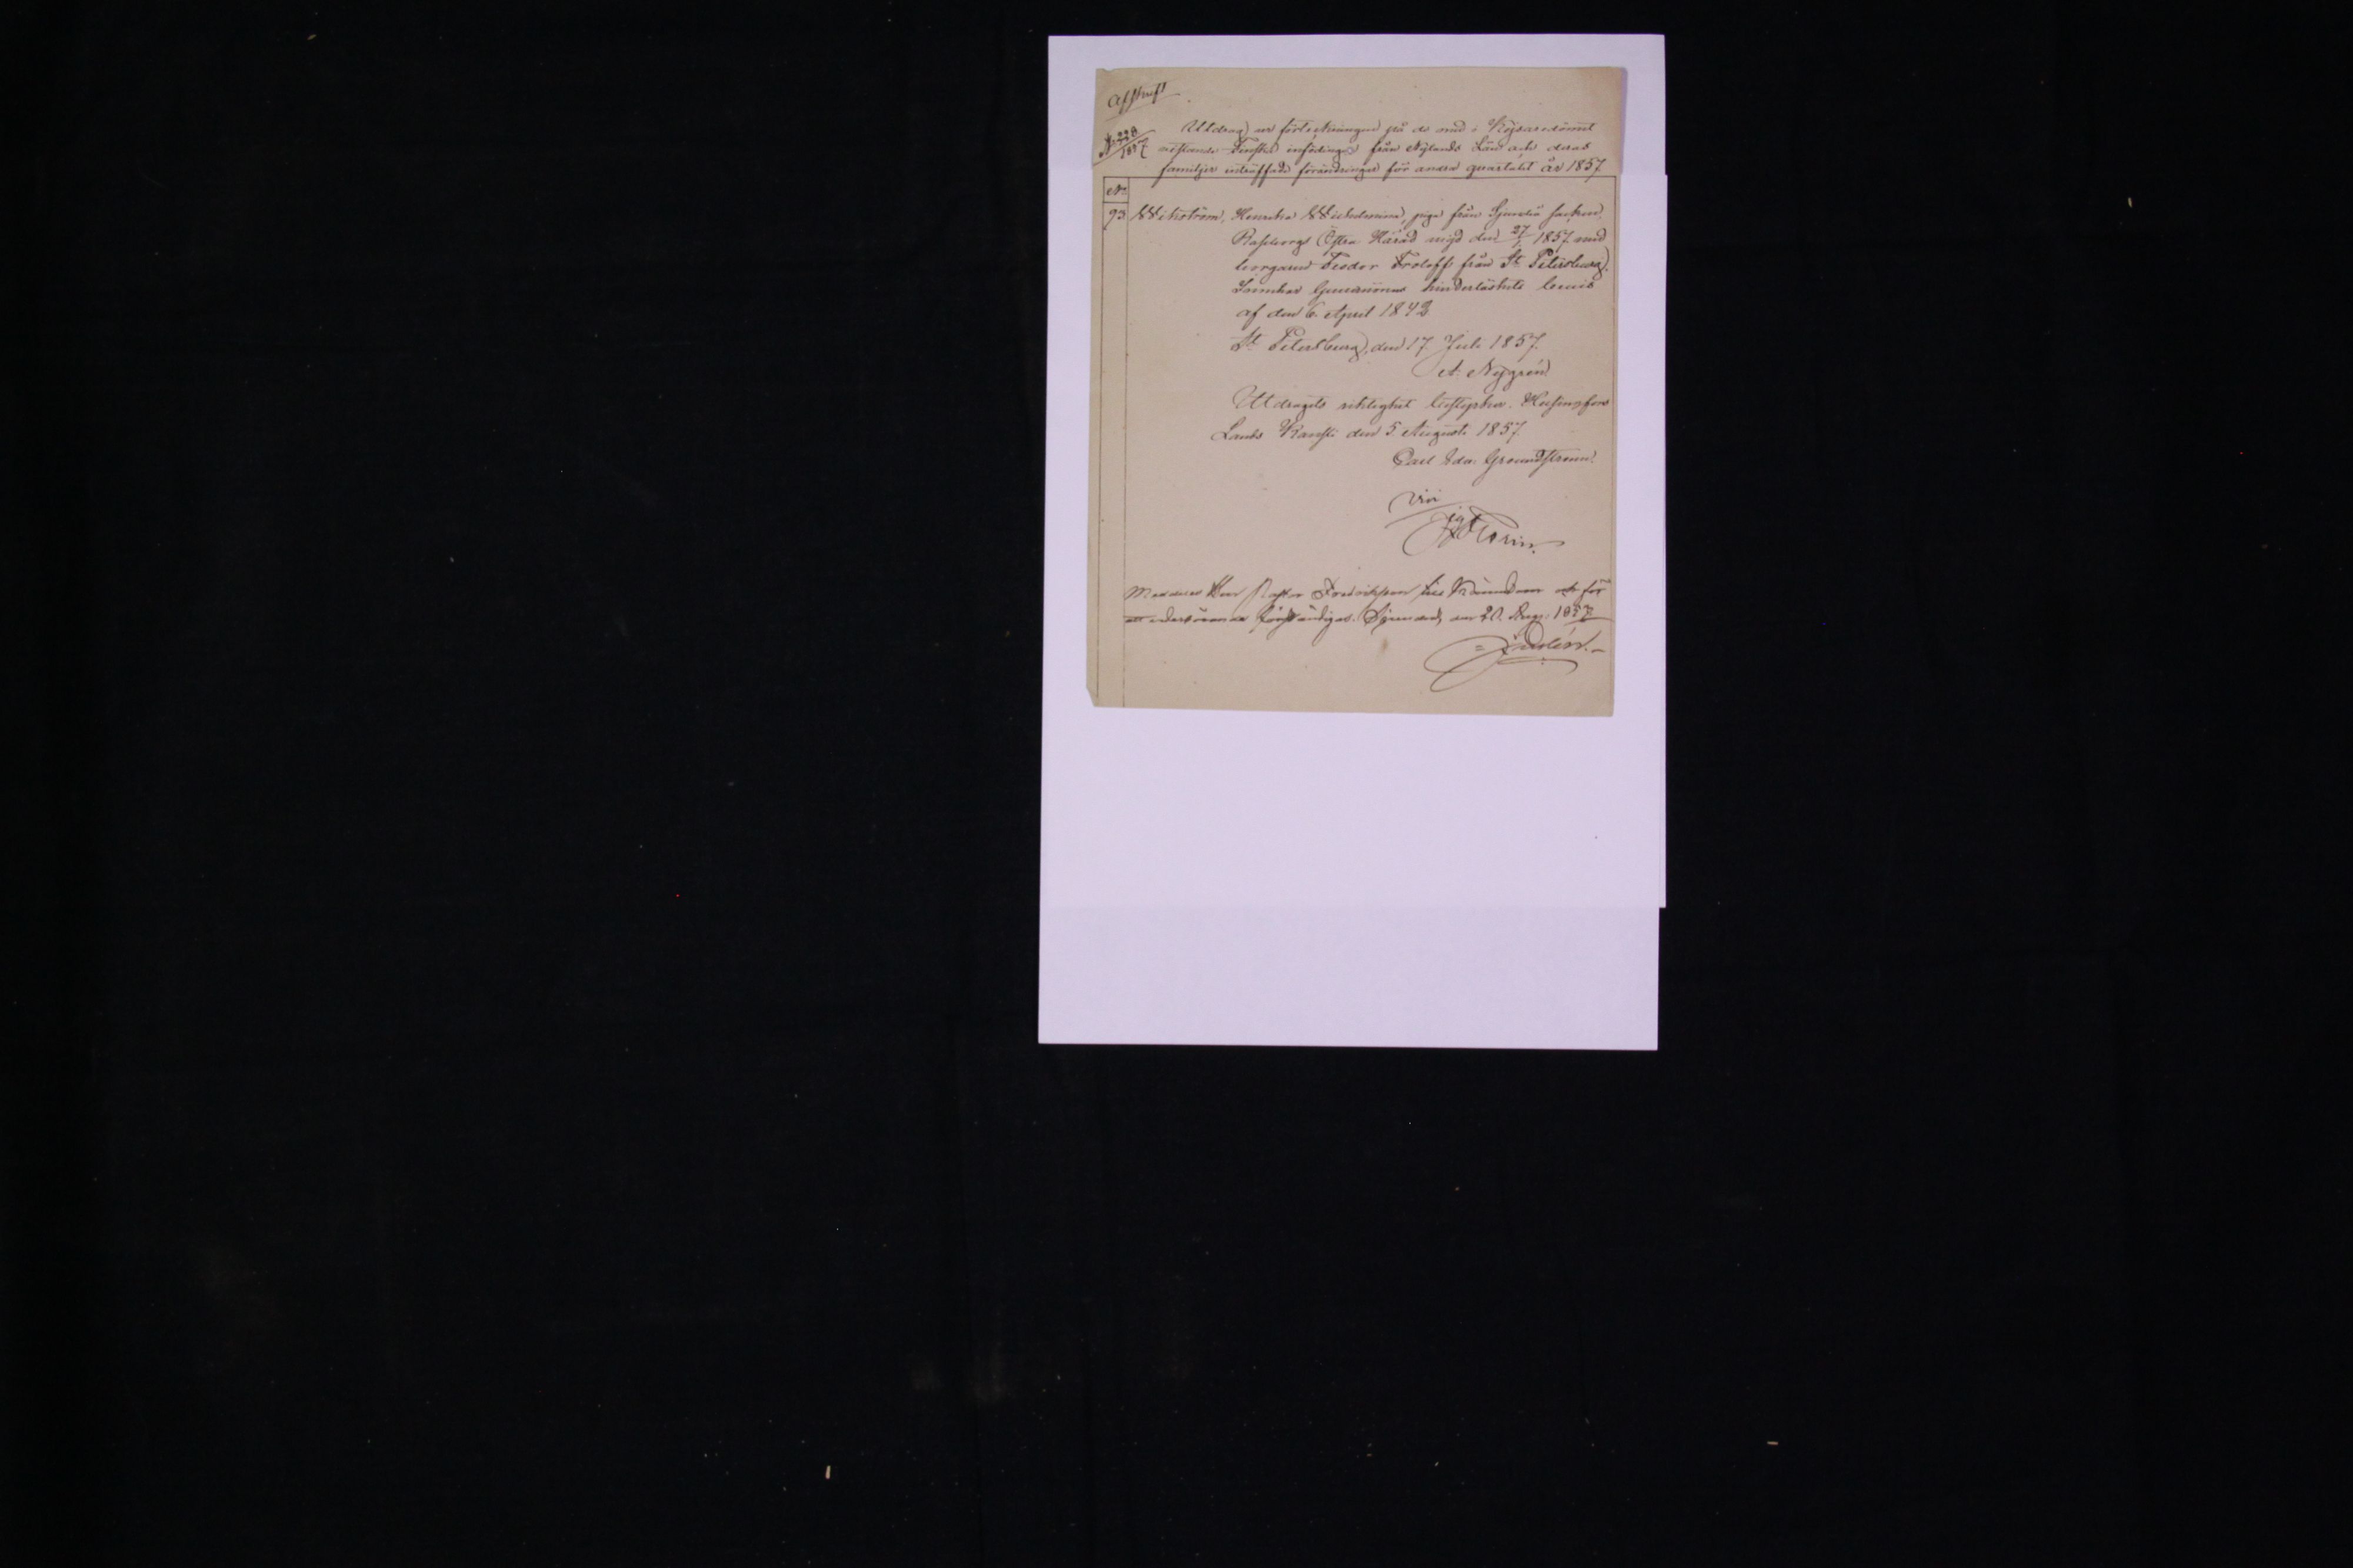 Afskrift
No 228
1857
Utdrag ur förteckningen på de med i Kejsaredömet
vistande Finska infödingar från Nylands Län och deras
familjer inträffade förändringar för andra quartalet år 1857.
No
93 Wikström, Henrika Wilhelmina, piga från Sjundeå socken,
Raseborgs Östra Härad vigd den 27/1 1857 med
borgaren Feodor Froloff från St Petersburg.
Innehar Gouvernörens hinderlöshets bevis
af den 6 April 1842
St Petersburg, den 17 Juli 1857.
A. Nygrén
Utdragets riktighet bestyrker. Helsingfors
Lands Kansli den 5 Augusti 1857.
Carl Edv. Grundström.
Meddelas Herr Pastor Fredriksson till kännedom och för
vederbörande. Sjundeå den 20. Aug. 1857.